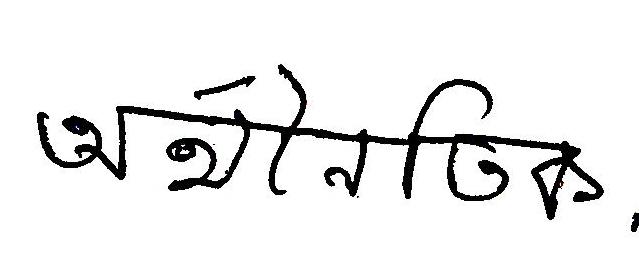 অর্থনৈতিক